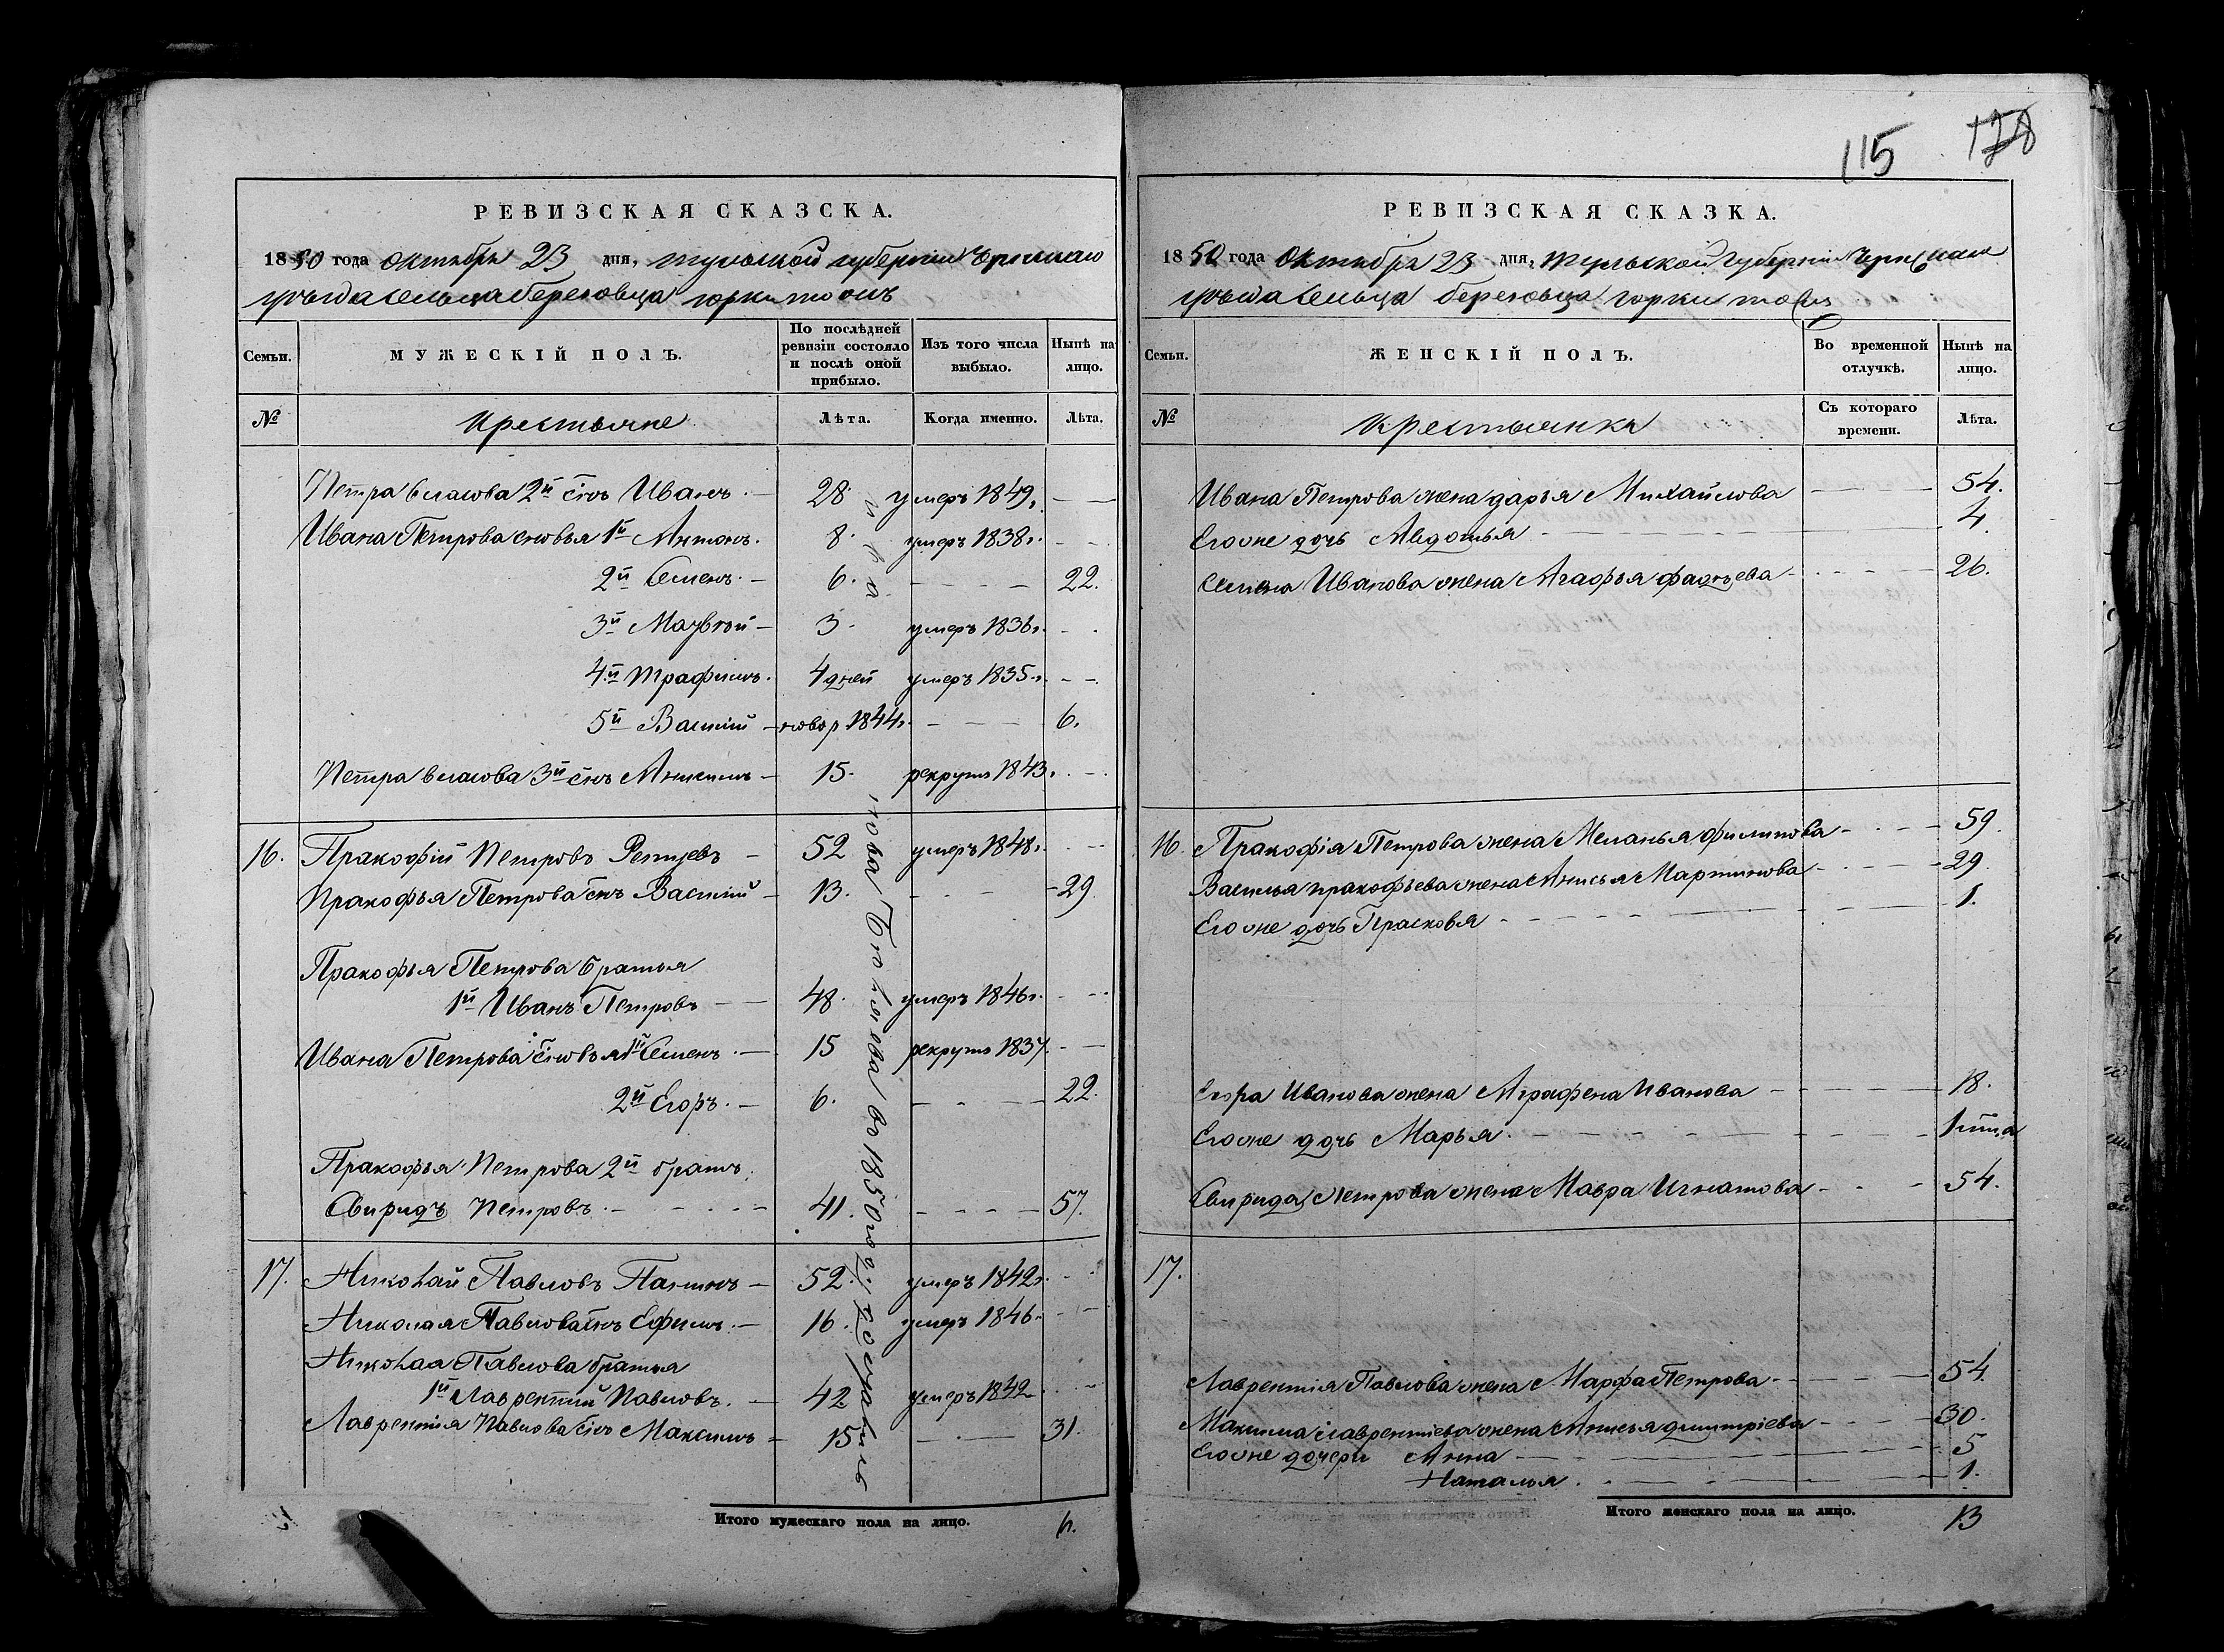 115 178
РЕВИЗСКАЯ СКАЗСКА.
1850 года Октября 23 дня, тульской губернии Чернскаго
уѣзда сельца березовца горки тожъ
Семьи. МУЖЕСКІЙ ПОЛЪ. По послѣдней ревизіи состояло и послѣ оной прибыло. Изъ того числа выбыло. Нынѣ на лицо.
№ Крестьяне Лѣта. Когда именно. Лѣта.
Петра власова 2й снъ Иванъ. — 28. умеръ 1849г. — —
Ивана Петрова сновья 1й Антонъ. 8. умеръ 1838г. - -
2й Семенъ. — 6. - - - - 22.
3й Матвѣй — 3. умеръ 1836г. - -
4й Трафимъ. 4 дней умеръ 1835г. - -
5й Василий — новор 1844г. - - - 6.
Петра власова 3й снъ Анисимъ — 15. рекрутъ 1843. - -
16. Пракофій Петровъ Репцевъ — 52 умеръ 1848г. - -
Пракофья Петрова снъ Василий — 13. - - - - 29.
Пракофья Петрова братья
1й Иванъ Петровъ — — 48. умеръ 1846г. - -
Ивана Петрова сновья 1й Семенъ. — 15 рекрутъ 1837. - —
2й Егоръ. — 6. - - - - 22.
Пракофья Петрова 2й братъ.
Свиридъ Петровъ. - - - - 41. - - - - 57.
17. Николай Павловъ — 52. умеръ 1842г. - -
Николая Павлова снъ Ефимъ. — 16. умеръ 1846. - -
Николая Павлова братья
1й Лаврентий Павловъ. — 42 умеръ 1842 - -
Лаврентия Павлова снъ Максимъ - 15 - - — 31.
въ 1850 году
Итого мужескаго пола на лицо. 6.
РЕВИЗСКАЯ СКАЗКА.
1850 года Октября 23 дня, тульской Губерніи Чернскаго
уѣзда Сельца березовца горки тожъ
Семьи. ЖЕНСКІЙ ПОЛЪ. Во временной отлучкѣ. Нынѣ на лицо.
№ Крестьянки Съ котораго времени. Лѣта.
Ивана Петрова жена дарья Михайлова — — — 54.
Егоже дочь Авдотья - - - - 4.
Семена Иванова жена Агафья фадѣева - - - - 26.
16. Пракофія Петрова жена Меланья филипова - - - 59.
Василья пракофьева жена Анисья Мартинова - - - 29.
Егоже дочь Прасковья - - - - 1.
Егора Иванова жена Аграфена Иванова - - - - 18.
Егоже дочь Марья. - - - -
Свирида Петрова жена Мавра Игнатова - - - 54.
17.
Лаврентия Павлова жена Марфа Петрова - - - - 54.
Максима лаврентиева жена Анисья димитріева - - - 30.
Егоже дочери Анна - - - - 5
Наталья. - - - - 1.
Итого женскаго пола на лицо. 13